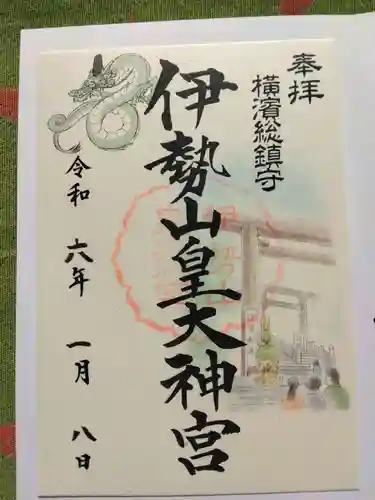 奉拝
横濱総鎮守
伊勢山皇大神宮
令和 六年 一月 八日